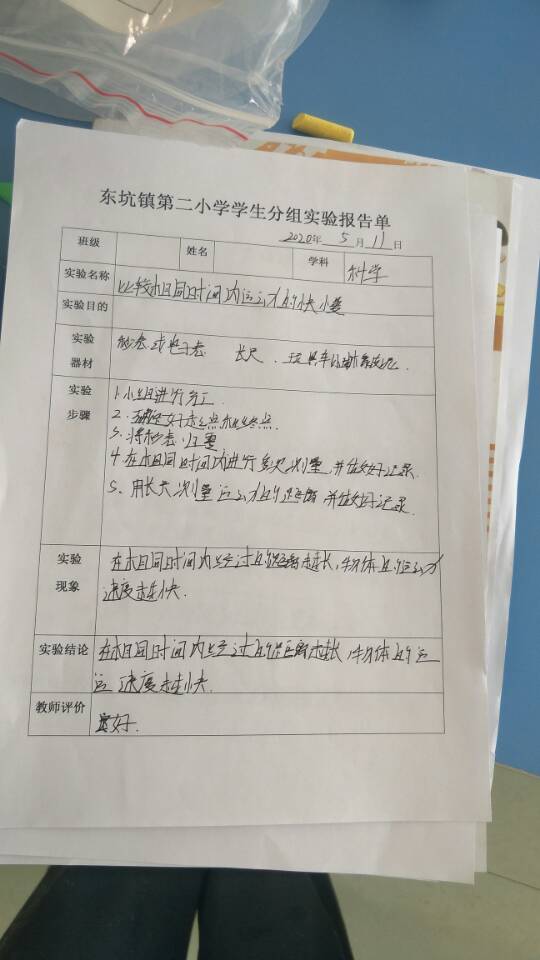 东坑镇第二小学学生分组实验报告单
2020年 5月 11日
班级 姓名 学科 科学
实验名称 比较相同时间内运动的快慢
实验目的
实验器材 秒表或电子表 长尺、玩具车
实验步骤 1.小组进行分工
2.确定好起点和终点
3.将秒表归零
4.在相同时间内进行多次测量并做好记录
5.用长尺测量运动的距离并做好记录
实验现象 在相同时间内经过的距离越长,物体的运动
速度越快.
实验结论 在相同时间内经过的距离越长,物体的运
运速度越快.
教师评价 良好.